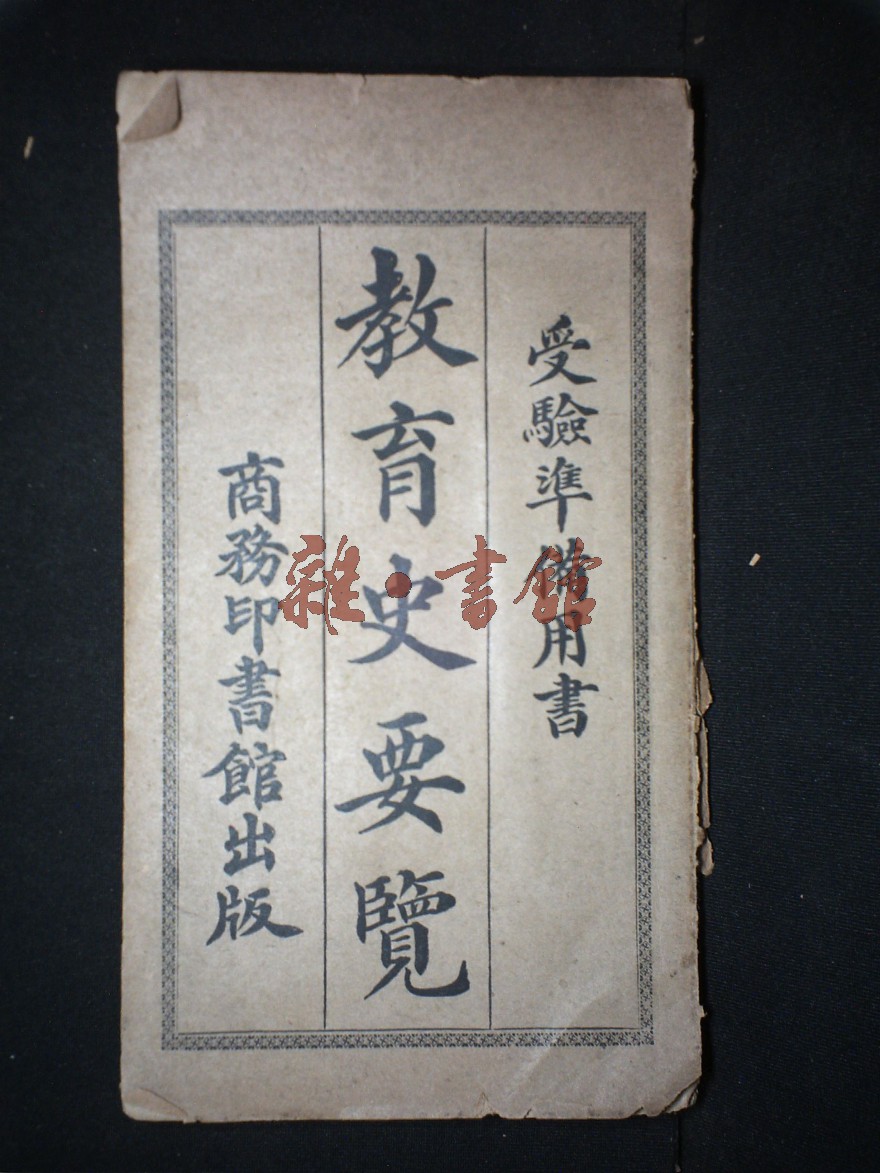 受驗準備用書
教育史要覽
商務印書館出版
雜·書館